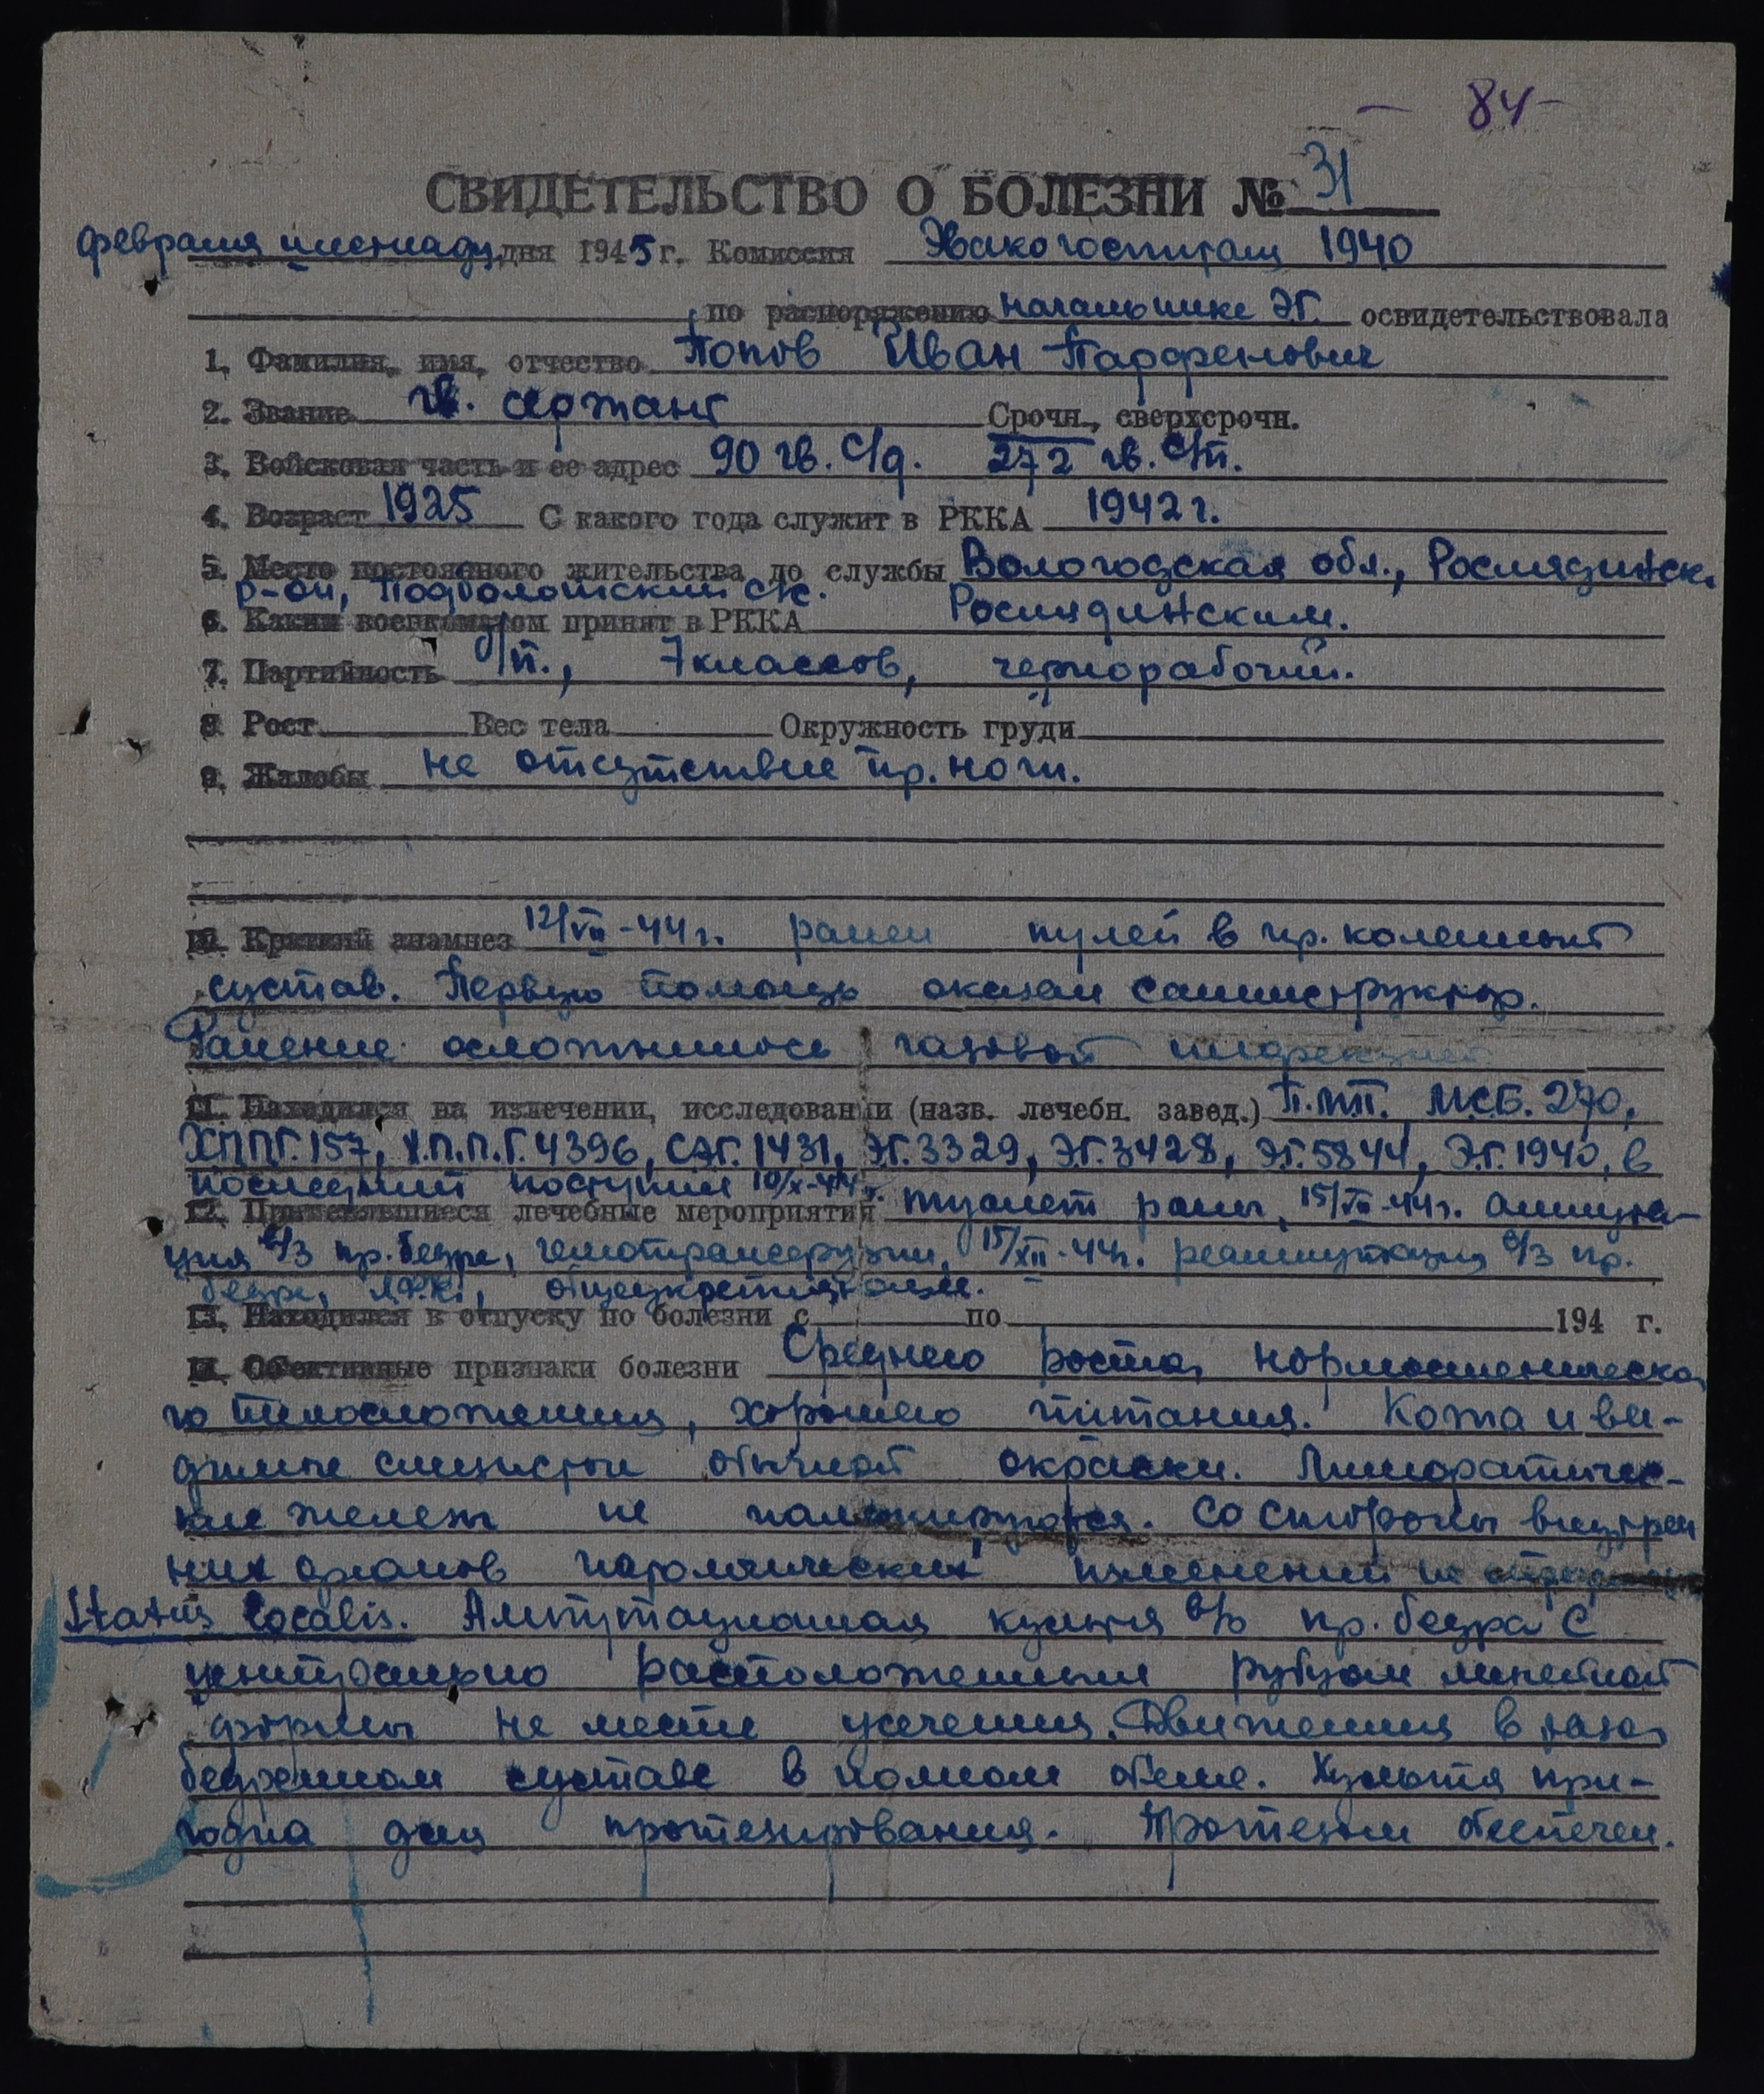 - 84 -
СВИДЕТЕЛЬСТВО О БОЛЕЗНИ № 31
февраля шестнадц. дня 1945 г. Комиссия Эвакогоспиталя 1940
по распоряжению начальника ЭГ. освидетельствовала
1. Фамилия, имя, отчество Попов Иван Парфенович
2. Звание гв. сержант Срочн., сверхсрочн.
3. Войсковая часть и ее адрес 90 гв. с/д. 272 гв. с/п.
4. Возраст 1925 С какого года служит в РККА 1942 г.
5. Место постоянного жительства до службы Вологодская обл., Рослядинск.
р-он, Подболотский с/с.
6. Каким военкоматом принят в РККА Рослядинским.
7. Партийность б/п., 7 классов, чернорабочий.
8 Рост Вес тела Окружность груди
9. Жалобы на отсутствие пр. ноги.
10. Краткий анамнез 12/VII-44 г. ранен пулей в пр. коленный
сустав. Первую помощь оказал санинструктор.
Ранение осложнилось газовой инфекцией
11. Находился на излечении, исследовании (назв. лечебн. завед.) П.М.П. МСБ. 270,
ХППГ. 157, Х.П.П.Г. 4396, СЭГ. 1431, ЭГ. 3329, ЭГ. 3428, ЭГ. 5844, Э.Г. 1940, в
последний поступил 10/X-44 г.
12. Применявшиеся лечебные мероприятия туалет раны, 15/VII-44 г. ампута-
ция в/3 пр. бедра, гемотрансфузии, 15/XII-44 г. реампутация в/3 пр.
бедра, ЛФК, общеукрепляющее.
13. Находился в отпуску по болезни с по 194 г.
14. Обективные признаки болезни Среднего роста, нормостеническо
го телосложения, хорошего питания. Кожа и ви-
димые слизистые обычной окраски. Лимфатичес-
кие железы не пальпируются. Со стороны внутрен
них органов патологических изменений не
Status localis. Ампутационная культя в/3 пр. бедра с
центрально расположенным рубцом линейной
формы на месте усечения. Движения в тазо
бедренном суставе в полном обеме. Культя при-
годна для протезирования. Протезом обеспечен.